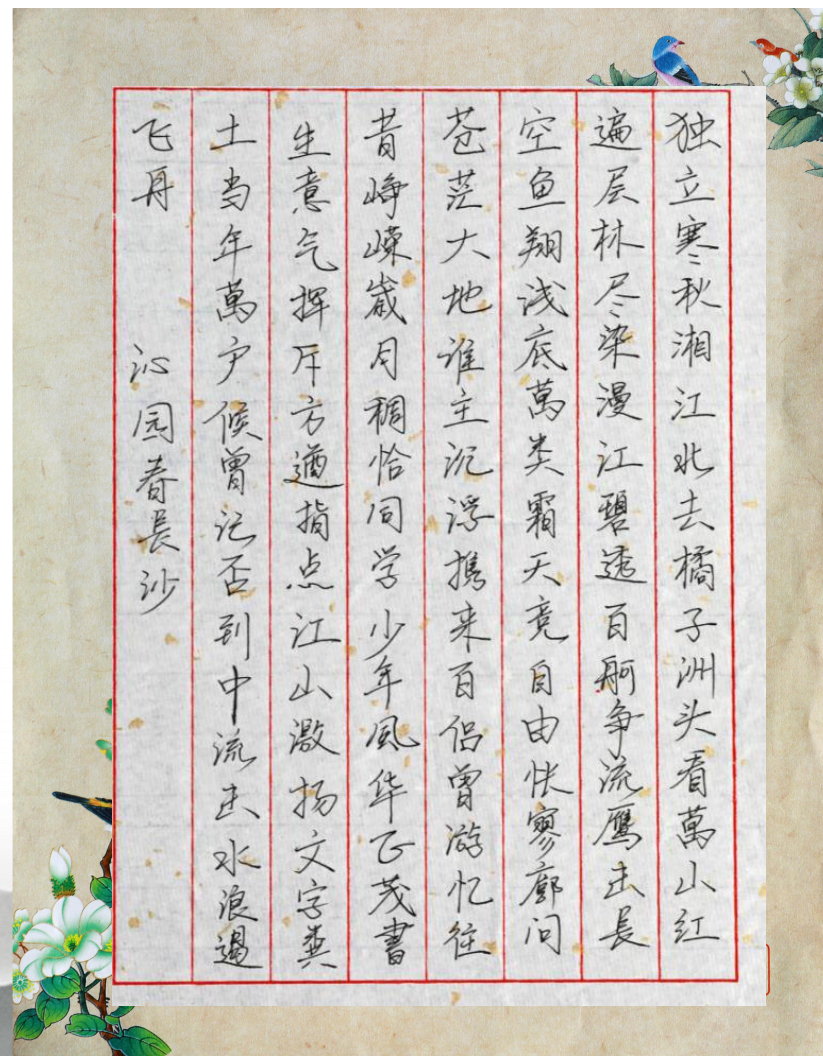 独立寒秋湘江北去橘子洲头看萬山红
遍层林尽染漫江碧透百舸争流鹰击長
空鱼翔浅底萬类霜天竞自由怅寥廓问
苍茫大地谁主沉浮携来百侣曾游忆往
昔峥嵘岁月稠恰同学少年風华正茂書
生意气挥斥方遒指点江山激扬文字粪
土当年萬户侯曾记否到中流击水浪遏
飞舟 沁园春長沙